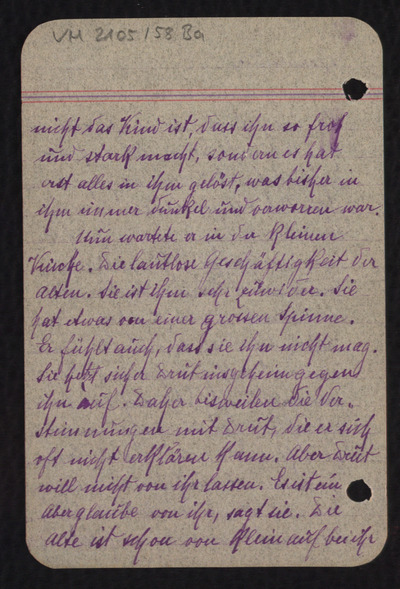 VM 2105/58 Ba
nicht das Kind ist, dass ihn so froh
und stark macht, sondern es hat
erst alles in ihm gelöst, was bisher in
ihm immer dunkel und verworren war.
Nun wartete er in der kleinen
Küche. Die lautlose Geschäftigkeit der
Alten. Sie ist ihm sehr zuwider. Sie
hat etwas von einer grossen Spinne.
Er fühlt auch, dass sie ihn nicht mag.
Sie hetzt sicher Drut insgeheim gegen
ihn auf. Daher bisweilen die Ver-
stimmungen mit Drut, die er sich
oft nicht erklären kann. Aber Drut
will nicht von ihr lassen. Es ist ein
Aberglaube von ihr, sagt sie. Die
Alte ist schon von klein auf bei ihr